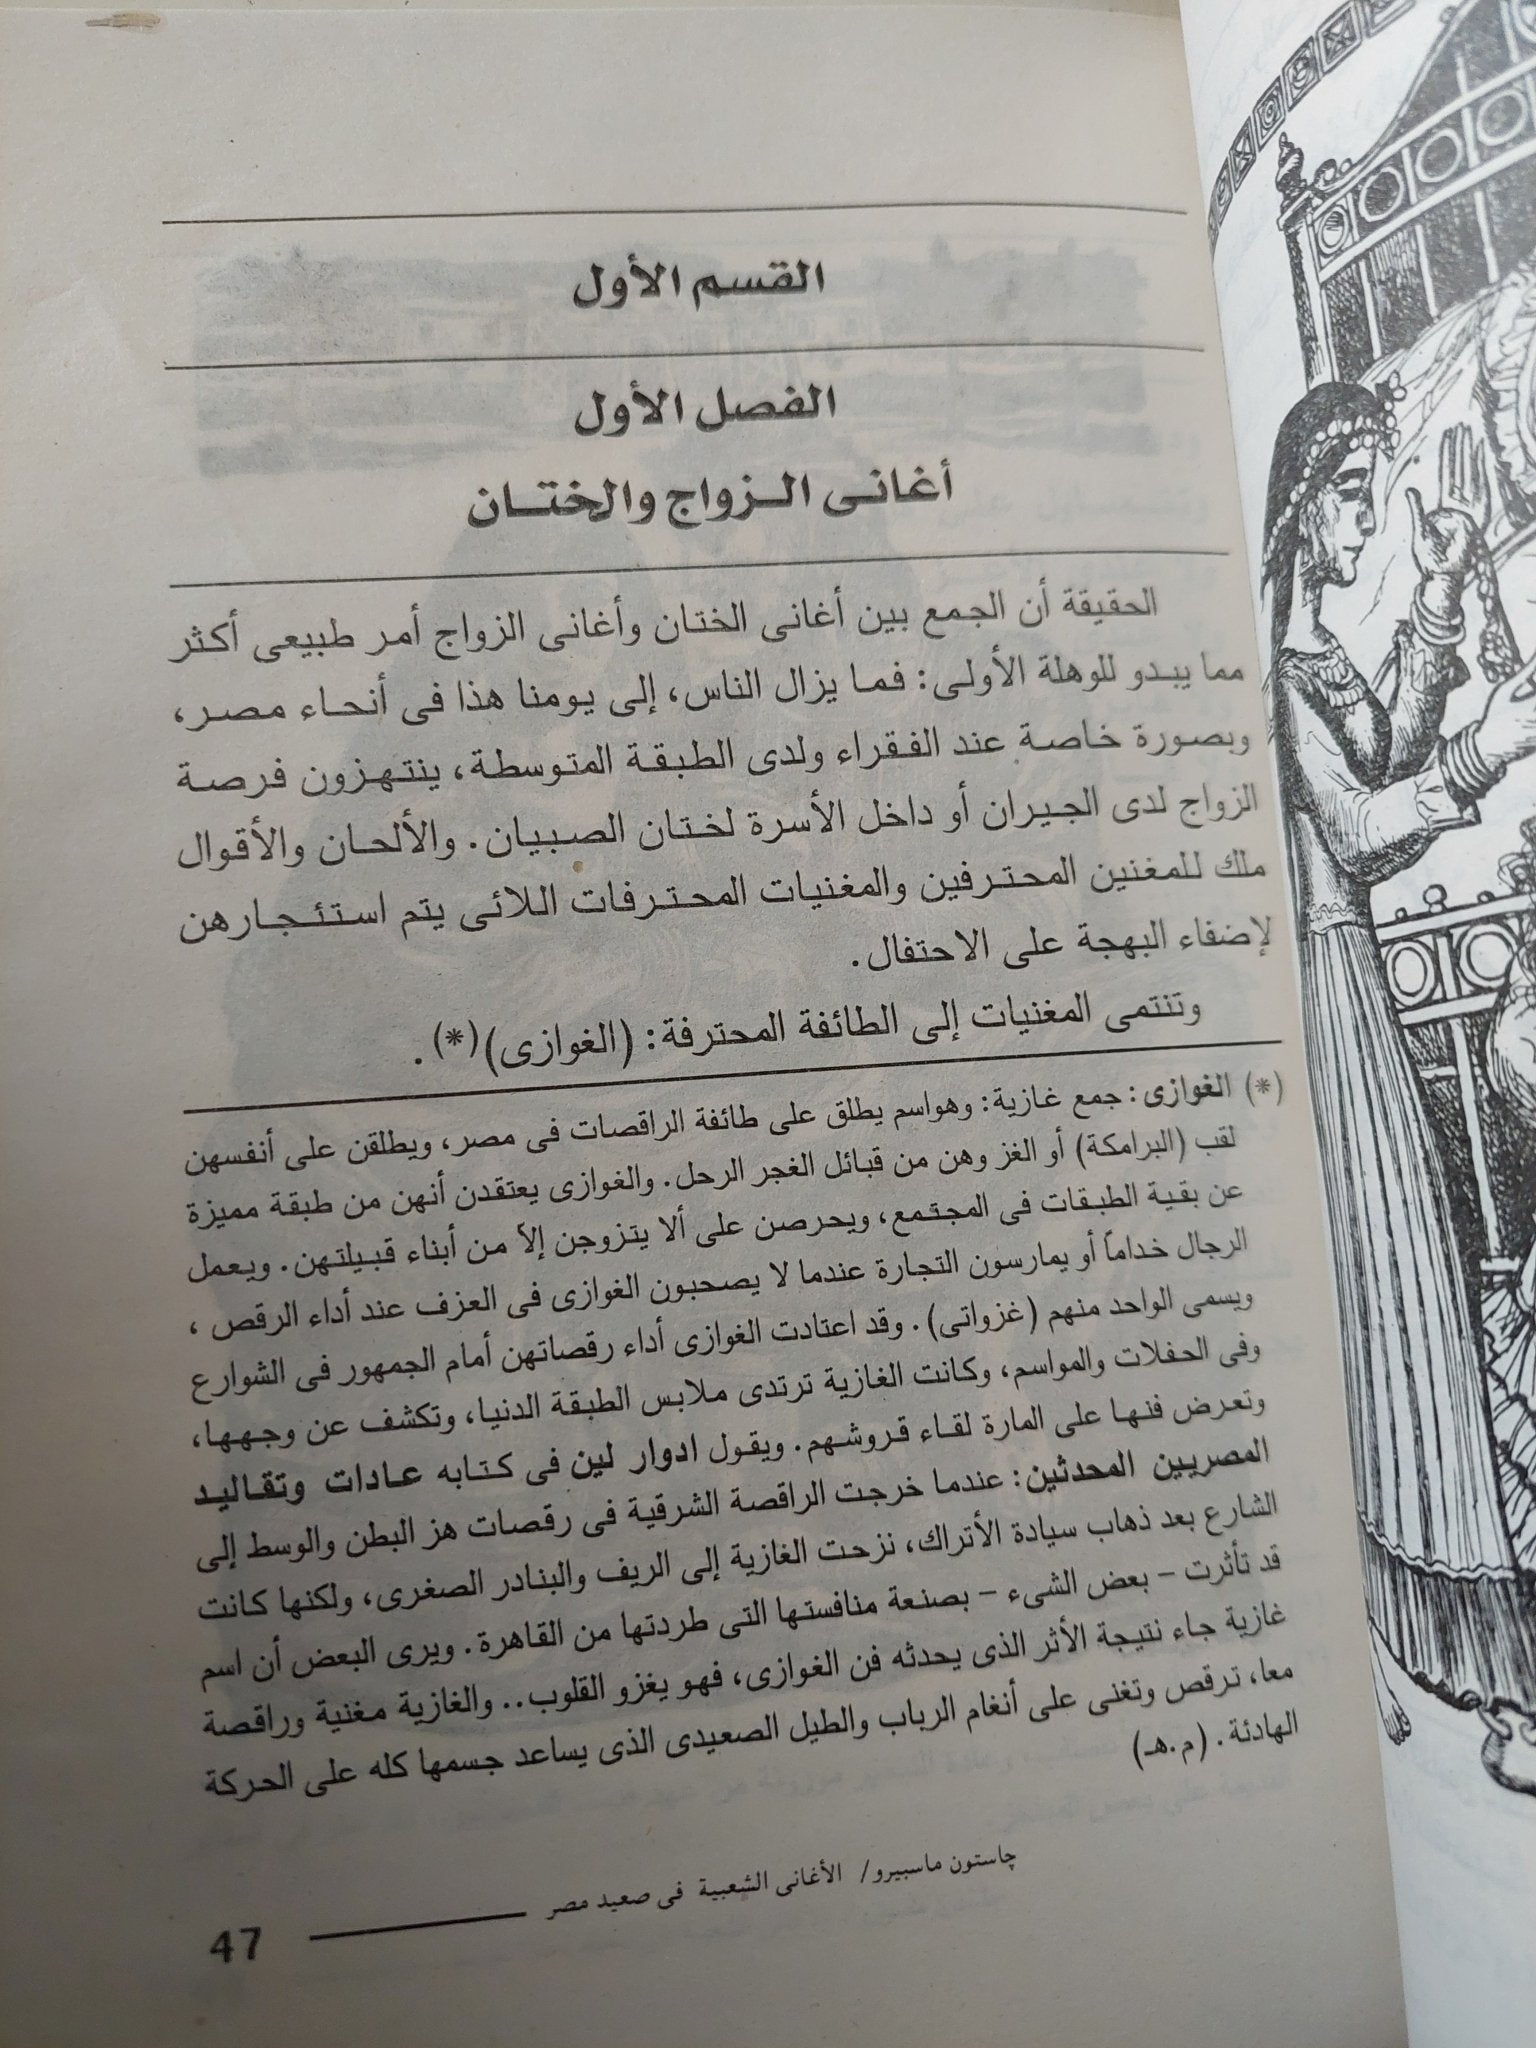 القسم الأول
الفصل الأول
أغانى الـزواج والختـان
الحقيقة أن الجمع بين أغانى الختان وأغانى الزواج أمر طبيعى أكثر
مما يبدو للوهلة الأولى: فما يزال الناس، إلى يومنا هذا فى أنحاء مصر،
وبصورة خاصة عند الفقراء ولدى الطبقة المتوسطة، ينتهزون فرصة
الزواج لدى الجيران أو داخل الأسرة لختان الصبيان. والألحان والأقوال
ملك للمغنين المحترفين والمغنيات المحترفات اللائى يتم استئجارهن
لإضفاء البهجة على الاحتفال.
وتنتمى المغنيات إلى الطائفة المحترفة: (الغوازى)(*).
(*) الغوازى: جمع غازية: وهواسم يطلق على طائفة الراقصات فى مصر، ويطلقن على أنفسهن
لقب (البرامكة) أو الغز وهن من قبائل الغجر الرحل. والغوازى يعتقدن أنهن من طبقة مميزة
عن بقية الطبقات فى المجتمع، ويحرصن على ألا يتزوجن إلاّ من أبناء قبيلتهن. ويعمل
الرجال خداماً أو يمارسون التجارة عندما لا يصحبون الغوازى فى العزف عند أداء الرقص ،
ويسمى الواحد منهم (غزواتى). وقد اعتادت الغوازى أداء رقصاتهن أمام الجمهور فى الشوارع
وفى الحفلات والمواسم، وكانت الغازية ترتدى ملابس الطبقة الدنيا، وتكشف عن وجهها،
وتعرض فنها على المارة لقاء قروشهم. ويقول ادوار لين فى كتابه عـادات وتقـاليـد
المصريين المحدثين: عندما خرجت الراقصة الشرقية فى رقصات هز البطن والوسط إلى
الشارع بعد ذهاب سيادة الأتراك، نزحت الغازية إلى الريف والبنادر الصغرى، ولكنها كانت
قد تأثرت - بعض الشىء - بصنعة منافستها التى طردتها من القاهرة. ويرى البعض أن اسم
غازية جاء نتيجة الأثر الذى يحدثه فن الغوازى، فهو يغزو القلوب.. والغازية مغنية وراقصة
معا، ترقص وتغنى على أنغام الرباب والطبل الصعيدى الذى يساعد جسمها كله على الحركة
الهادئة. (م.هـ)
چاستون ماسبيرو/ الأغانى الشعبية فى صعيد مصر
47